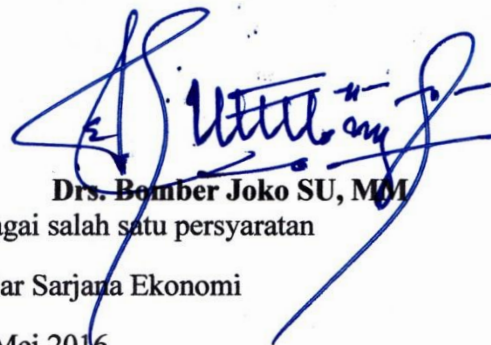 Drs. Bomber Joko SU, MM
agai salah satu persyaratan
ar Sarjana Ekonomi
Mei 2016